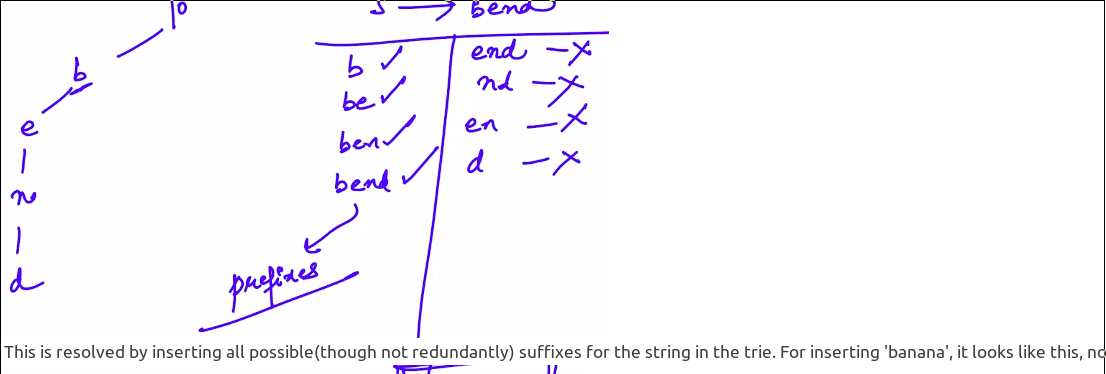 s → bend
b ✓
be ✓
ben ✓
bend ✓
prefixes
end - x
nd - x
en - x
d - x
b
e
n
d
This is resolved by inserting all possible(though not redundantly) suffixes for the string in the trie. For inserting 'banana', it looks like this,